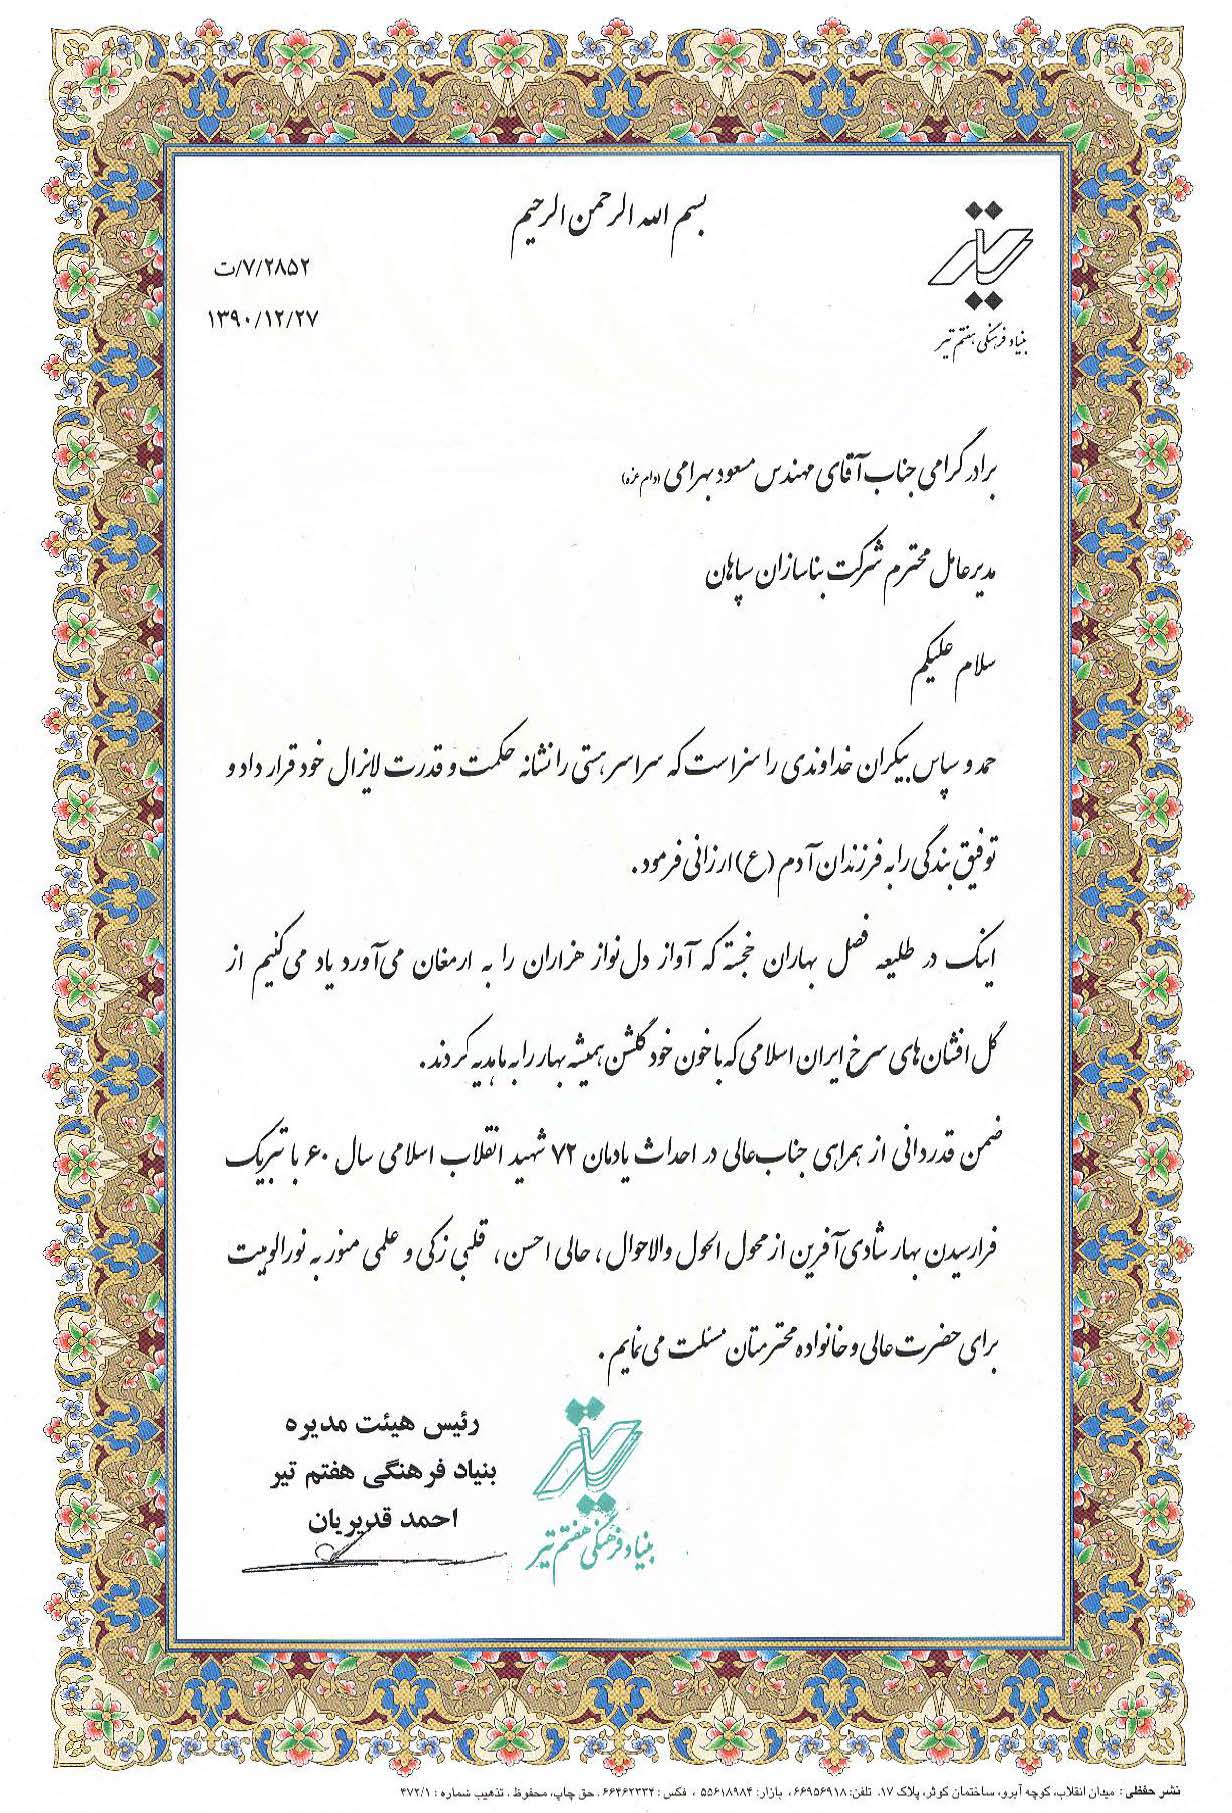 بسم الله الرحمن الرحیم
بنیاد فرهنگی هفتم تیر
۷/۲۸۵۲/ت
۱۳۹۰/۱۲/۲۷
برادر گرامی جناب آقای مهندس مسعود بهرامی (دام عزه)
مدیرعامل محترم شرکت بناسازان سپاهان
سلام علیکم
حمد و سپاس بیکران خداوندی را سزاست که سراسر هستی را نشانه حکمت و قدرت لایزال خود قرار داد و
توفیق بندگی را به فرزندان آدم (ع) ارزانی فرمود.
اینک در طلیعه فصل بهاران خجسته که آواز دل‌نواز هزاران را به ارمغان می‌آورد یاد می‌کنیم از
گل افشان‌های سرخ ایران اسلامی که با خون خود گلشن همیشه بهار را به ما هدیه کردند.
ضمن قدردانی از همراهی جناب‌عالی در احداث یادمان ۷۲ شهید انقلاب اسلامی سال ۶۰ با تبریک
فرارسیدن بهار شادی‌آفرین از محول الحول والاحوال، حالی احسن، قلبی زکی و علمی منور به نور الوهیت
برای حضرت عالی و خانواده محترمتان مسئلت می‌نمایم.
رئیس هیئت مدیره
بنیاد فرهنگی هفتم تیر
احمد قدیریان
بنیاد فرهنگی هفتم تیر
نشر حفظی : میدان انقلاب، کوچه آبرو، ساختمان کوثر، پلاک ۱۷. تلفن: ۶۶۹۵۶۹۱۸، بازار: ۵۵۶۱۸۹۸۴ ، فکس : ۶۶۴۶۲۳۳۴. حق چاپ، محفوظ . تذهیب شماره : ۴۷۲/۱